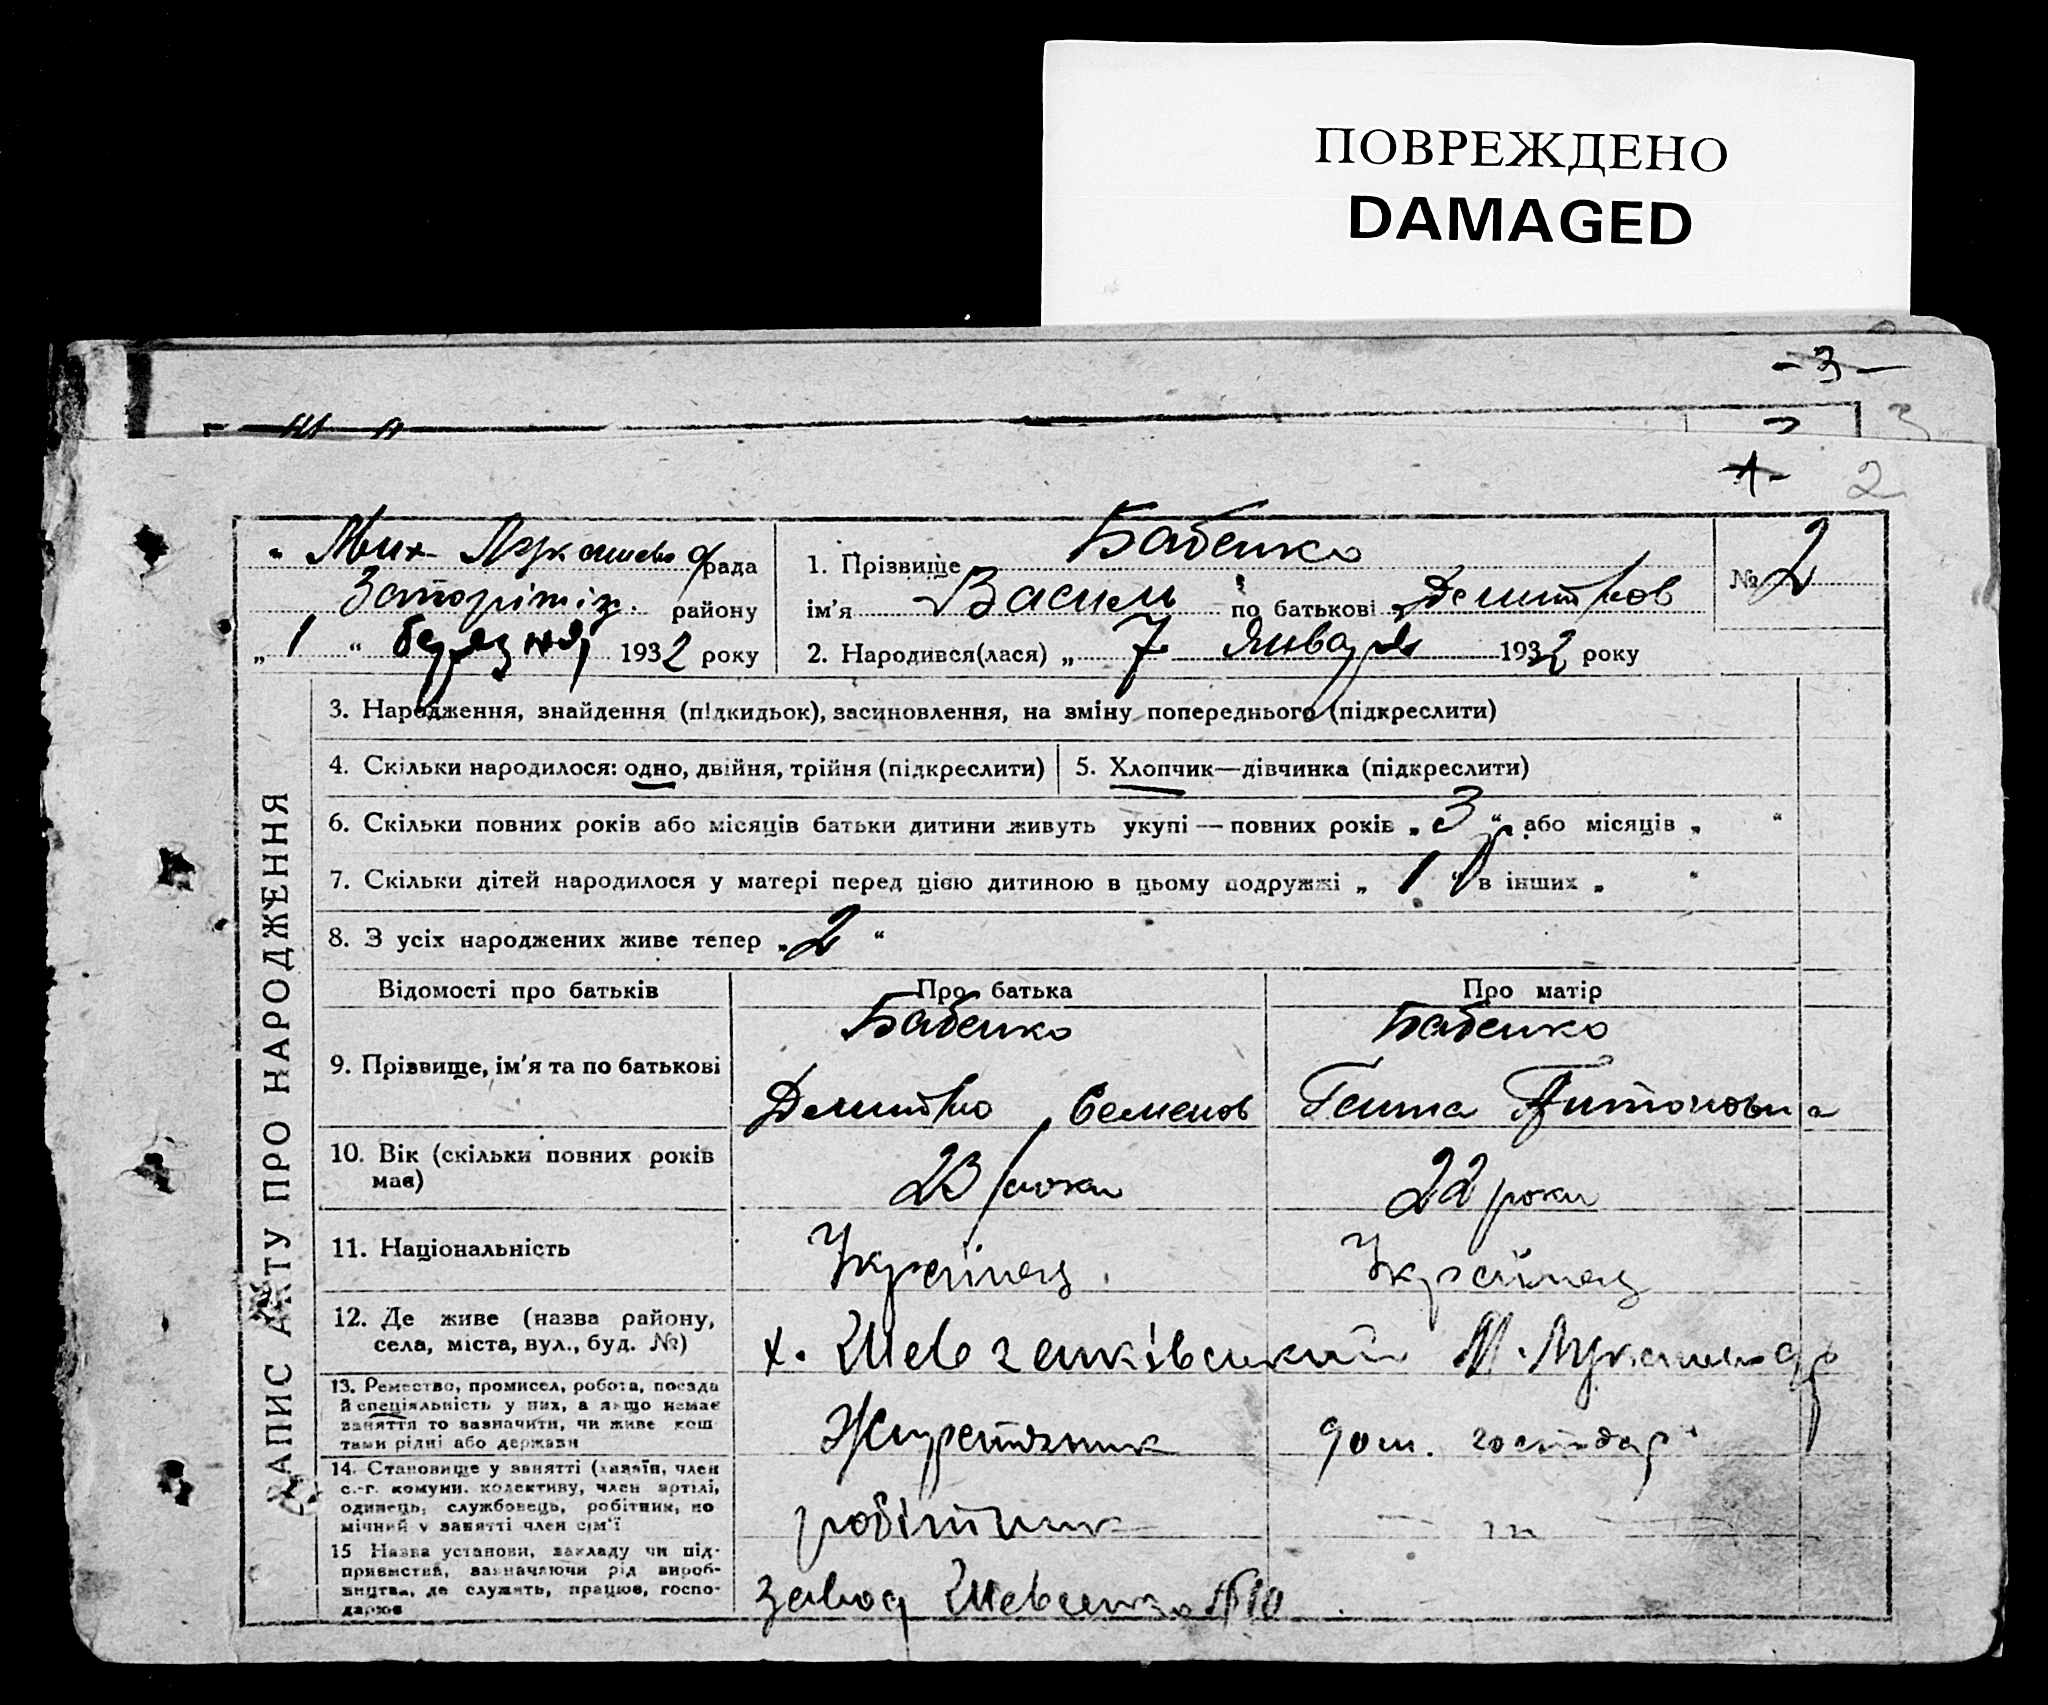 ПОВРЕЖДЕНО
DAMAGED
- 3 -
3
1
2
Мих-Лукашево рада
Запоріжж. району
„ 1 “ березня 1932 року
1. Прізвище Бабенко
ім'я Василь по батькові Дмитров
№ 2
2. Народився(лася) „ 7 Января 1932 року
ЗАПИС АКТУ ПРО НАРОДЖЕННЯ
3. Народження, знайдення (підкидьок), засиновлення, на зміну попереднього (підкреслити)
4. Скільки народилося: одно, двійня, трійня (підкреслити)
5. Хлопчик—дівчинка (підкреслити)
6. Скільки повних років або місяців батьки дитини живуть укупі — повних років „ 3 “ або місяців „ “
7. Скільки дітей народилося у матері перед цією дитиною в цьому подружжі „ 1 “ в інших „ “
8. З усіх народжених живе тепер „ 2 “
Відомості про батьків
Про батька
Про матір
9. Прізвище, ім'я та по батькові
Бабенко
Дмитро Семенов
Бабенко
Ганна Антоновна
10. Вік (скільки повних років
має)
23 роки
22 роки
11. Національність
Українец
Українец
12. Де живе (назва району,
села, міста, вул., буд. №)
х. Шевченківський М. Лукашево
13. Ремество, промисел, робота, посада
й спеціяльність у них, а якщо немає
заняття то зазначити, чи живе кош
тами рідні або держави
дом. господар
14. Становище у занятті (хазяїн, член
с.-г. комуни. колективу, член артілі,
одинець, службовець, робітник, по
мічний у занятті член сім'ї
робітник
15 Назва установи, закладу чи під-
приємства, зазначаючи рід вироб-
ництва, де служить, працює, госпо-
дарює
завод Шевченко № 10